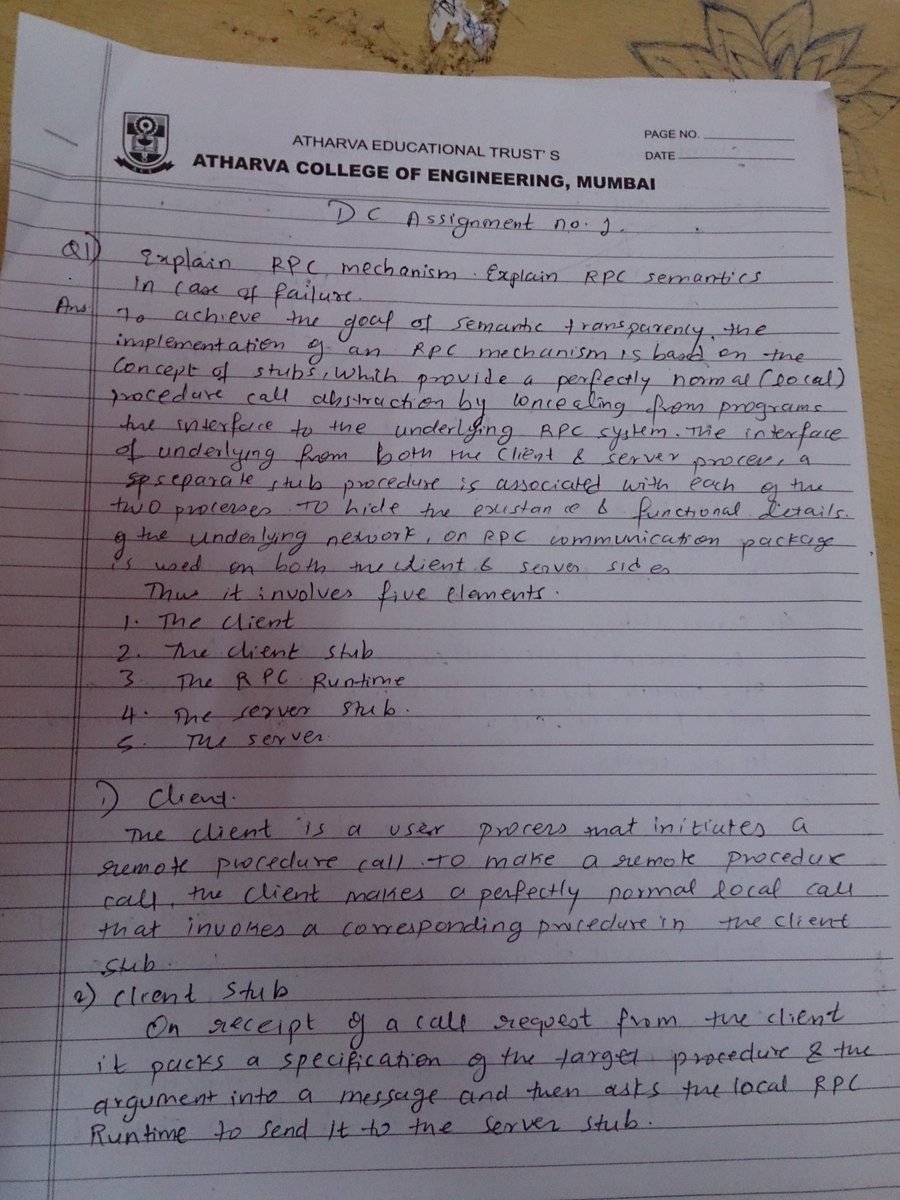 ATHARVA EDUCATIONAL TRUST'S
PAGE NO.
DATE
ATHARVA COLLEGE OF ENGINEERING, MUMBAI
DC Assignment no. 1.
Q1) Explain RPC mechanism. Explain RPC semantics
in case of failure.
Ans To achieve the goal of semantic transparency, the
implementation of an RPC mechanism is based on the
concept of stubs, which provide a perfectly normal (local)
procedure call abstraction by concealing from programs
the interface to the underlying RPC system. The interface
of underlying from both the client & server process, a
separate stub procedure is associated with each of the
two processes. To hide the existance & functional details.
of the underlyng network, on RPC communication package
is used on both the client & server sides
Thus it involves five elements.
1. The client
2. The client stub
3. The RPC Runtime
4. The server stub.
5. The server.
1) Client.
The client is a user process that initiates a
remote procedure call. To make a remote procedure
call, the client makes a perfectly normal local call
that invokes a corresponding procedure in the client
stub.
2) Client stub
On receipt of a call request from the client
it packs a specification of the target procedure & the
argument into a message and then asks the local RPC
Runtime to send it to the server stub.